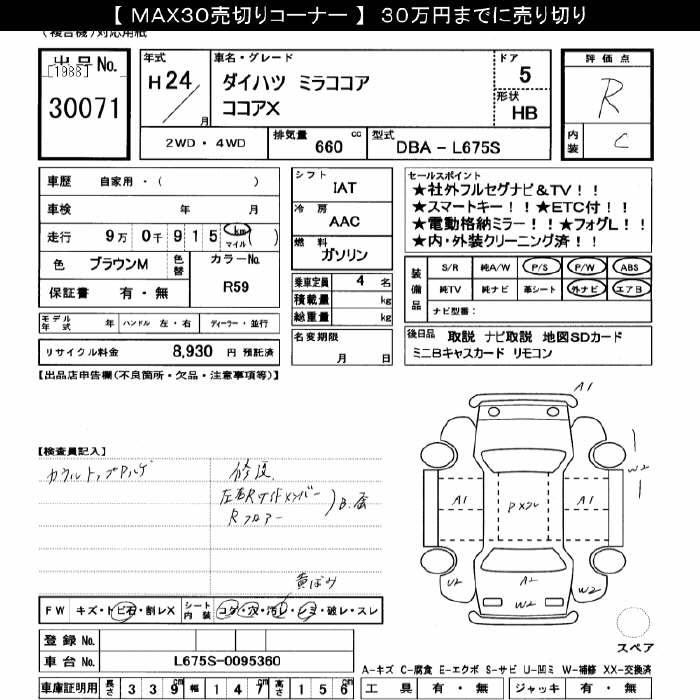 【 MAX30売切りコーナー 】 30万円までに売り切り
(複合機)対応用紙
出品No.
[1988]
30071
年式
H24
月
車名・グレード
ダイハツ ミラココア
ココアX
ドア
5
形状
HB
評価点
R
内装
C
2WD・4WD
排気量
660
cc
型式
DBA - L675S
車歴 自家用・( )
車検 年 月
走行 9万0千915 km マイル ( )
色 ブラウンM
色替
カラーNo.
R59
保証書 有・無
シフト
IAT
冷房
AAC
燃料
ガソリン
乗車定員 4 名
積載量 kg
総重量 kg
セールスポイント
★社外フルセグナビ&TV!!
★スマートキー!!★ETC付!!
★電動格納ミラー!!★フォグL!!
★内・外装クリーニング済!!
装備品
S/R 純A/W P/S P/W ABS
純TV 純ナビ 革シート 外ナビ エアB
ナビ型番:
モデル年式 年 ハンドル 左・右 ディーラー・並行
リサイクル料金 8,930 円 預託済
名変期限
月 日
後日品 取説 ナビ取説 地図SDカード
ミニBキャスカード リモコン
【出品店申告欄(不良箇所・欠品・注意事項等)】
【検査員記入】
カウルトップアルゲ
修復
左右Rサイドメンバー
Rフロアー
B.歪
黄ばみ
A1
W2
A1
PXクレ
A1
U2
A2
W2
W2
FW キズ・トビ石・割レX
シート内装 コゲ・穴・汚レ・シミ・破レ・スレ
登録 No.
車台 No. L675S-0095360
スペア
A-キズ C-腐食 E-エクボ S-サビ U-凹ミ W-補修 XX-交換済
車庫証明用 長さ 339 cm 幅 147 cm 高さ 156 cm
工具 有・無 ジャッキ 有・無